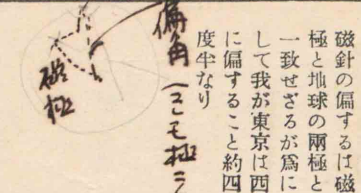 磁針の偏するは磁
極と地球の兩極と
一致せざるが爲に
して我が東京は西
に偏すること約四
度半なり
偏角(ニモ極ニ
磁極